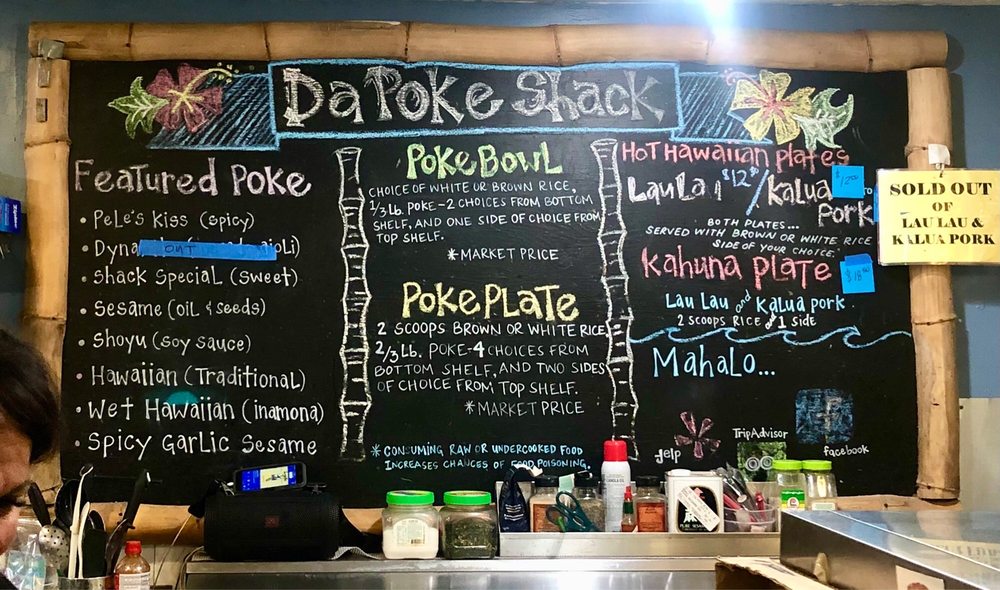 Da Poke Shack
Featured Poke
• Pele's Kiss (spicy)
• Dyna
OUT
ioli)
• Shack Special (sweet)
• Sesame (oil & seeds)
• Shoyu (soy sauce)
• Hawaiian (Traditional)
• Wet Hawaiian (inamona)
• Spicy Garlic Sesame
Poke Bowl
CHOICE OF WHITE OR BROWN RICE,
1/3 Lb. POKE-2 CHOICES FROM BOTTOM
SHELF, AND ONE SIDE OF CHOICE FROM
TOP SHELF.
*MARKET PRICE
Poke Plate
2 SCOOPS BROWN OR WHITE RICE
2/3 Lb. POKE-4 CHOICES FROM
BOTTOM SHELF, AND TWO SIDES
OF CHOICE FROM TOP SHELF.
*MARKET PRICE
* CONSUMING RAW OR UNDERCOOKED FOOD
INCREASES CHANCES OF FOOD POISONING.
Hot Hawaiian Plates
LauLa $12 / Kalua
Pork
BOTH PLATES...
SERVED WITH BROWN OR WHITE RICE
SIDE OF YOUR CHOICE.
Kahuna Plate
$18.00
Lau Lau and Kalua pork
2 SCOOPS RICE & 1 SIDE
Mahalo...
yelp
TripAdvisor
facebook
SOLD OUT
OF
LAU LAU &
KALUA PORK